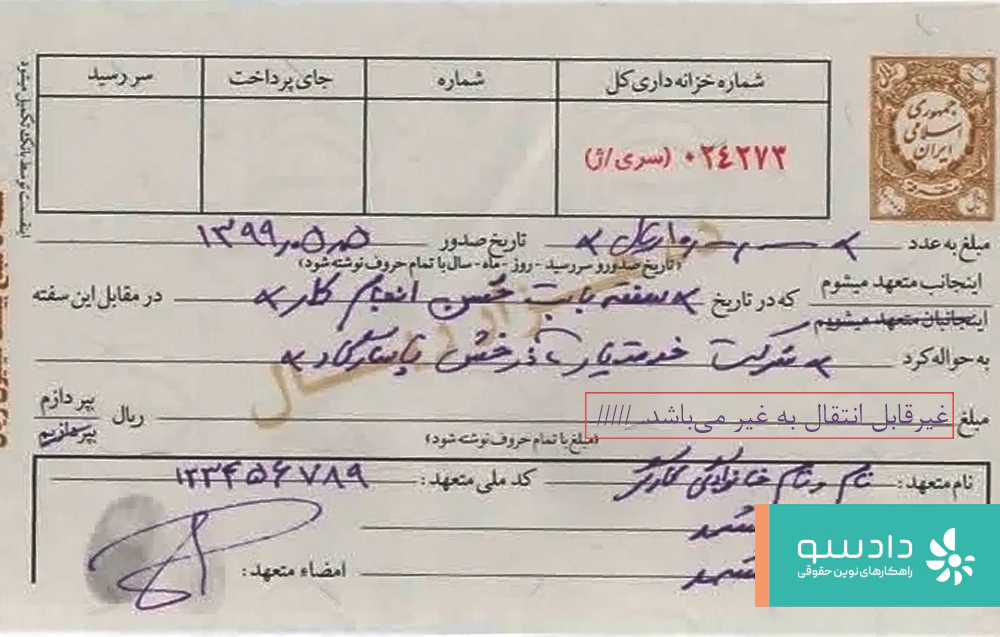 شماره خزانه داری کل شماره جای پرداخت سر رسید
۰۲۴۲۷۳ (سری/ژ)
اینقسمت توسط بانک تکمیل میشود
جمهوری
اسلامی
ایران
مبلغ به عدد ریال تاریخ صدور ۱۳۹۹/۰۵/۰۵
(تاریخ صدور و سررسید - روز - ماه - سال با تمام حروف نوشته شود)
اینجانب متعهد میشوم
اینجانبان متعهد میشویم
که در تاریخ سفته بابت حسن انجام کار در مقابل این سفته
به حواله کرد شرکت خدمت یاب درخش پاسارگاد
مبلغ غیرقابل انتقال به غیر می‌باشد. ///// ریال
بپردازم
بپردازیم
(مبلغ با تمام حروف نوشته شود)
نام متعهد: نام و نام خانوادگی کارگر کد ملی متعهد: ۱۲۳۴۵۶۷۸۹
امضاء متعهد:
دادسو
راهکارهای نوین حقوقی